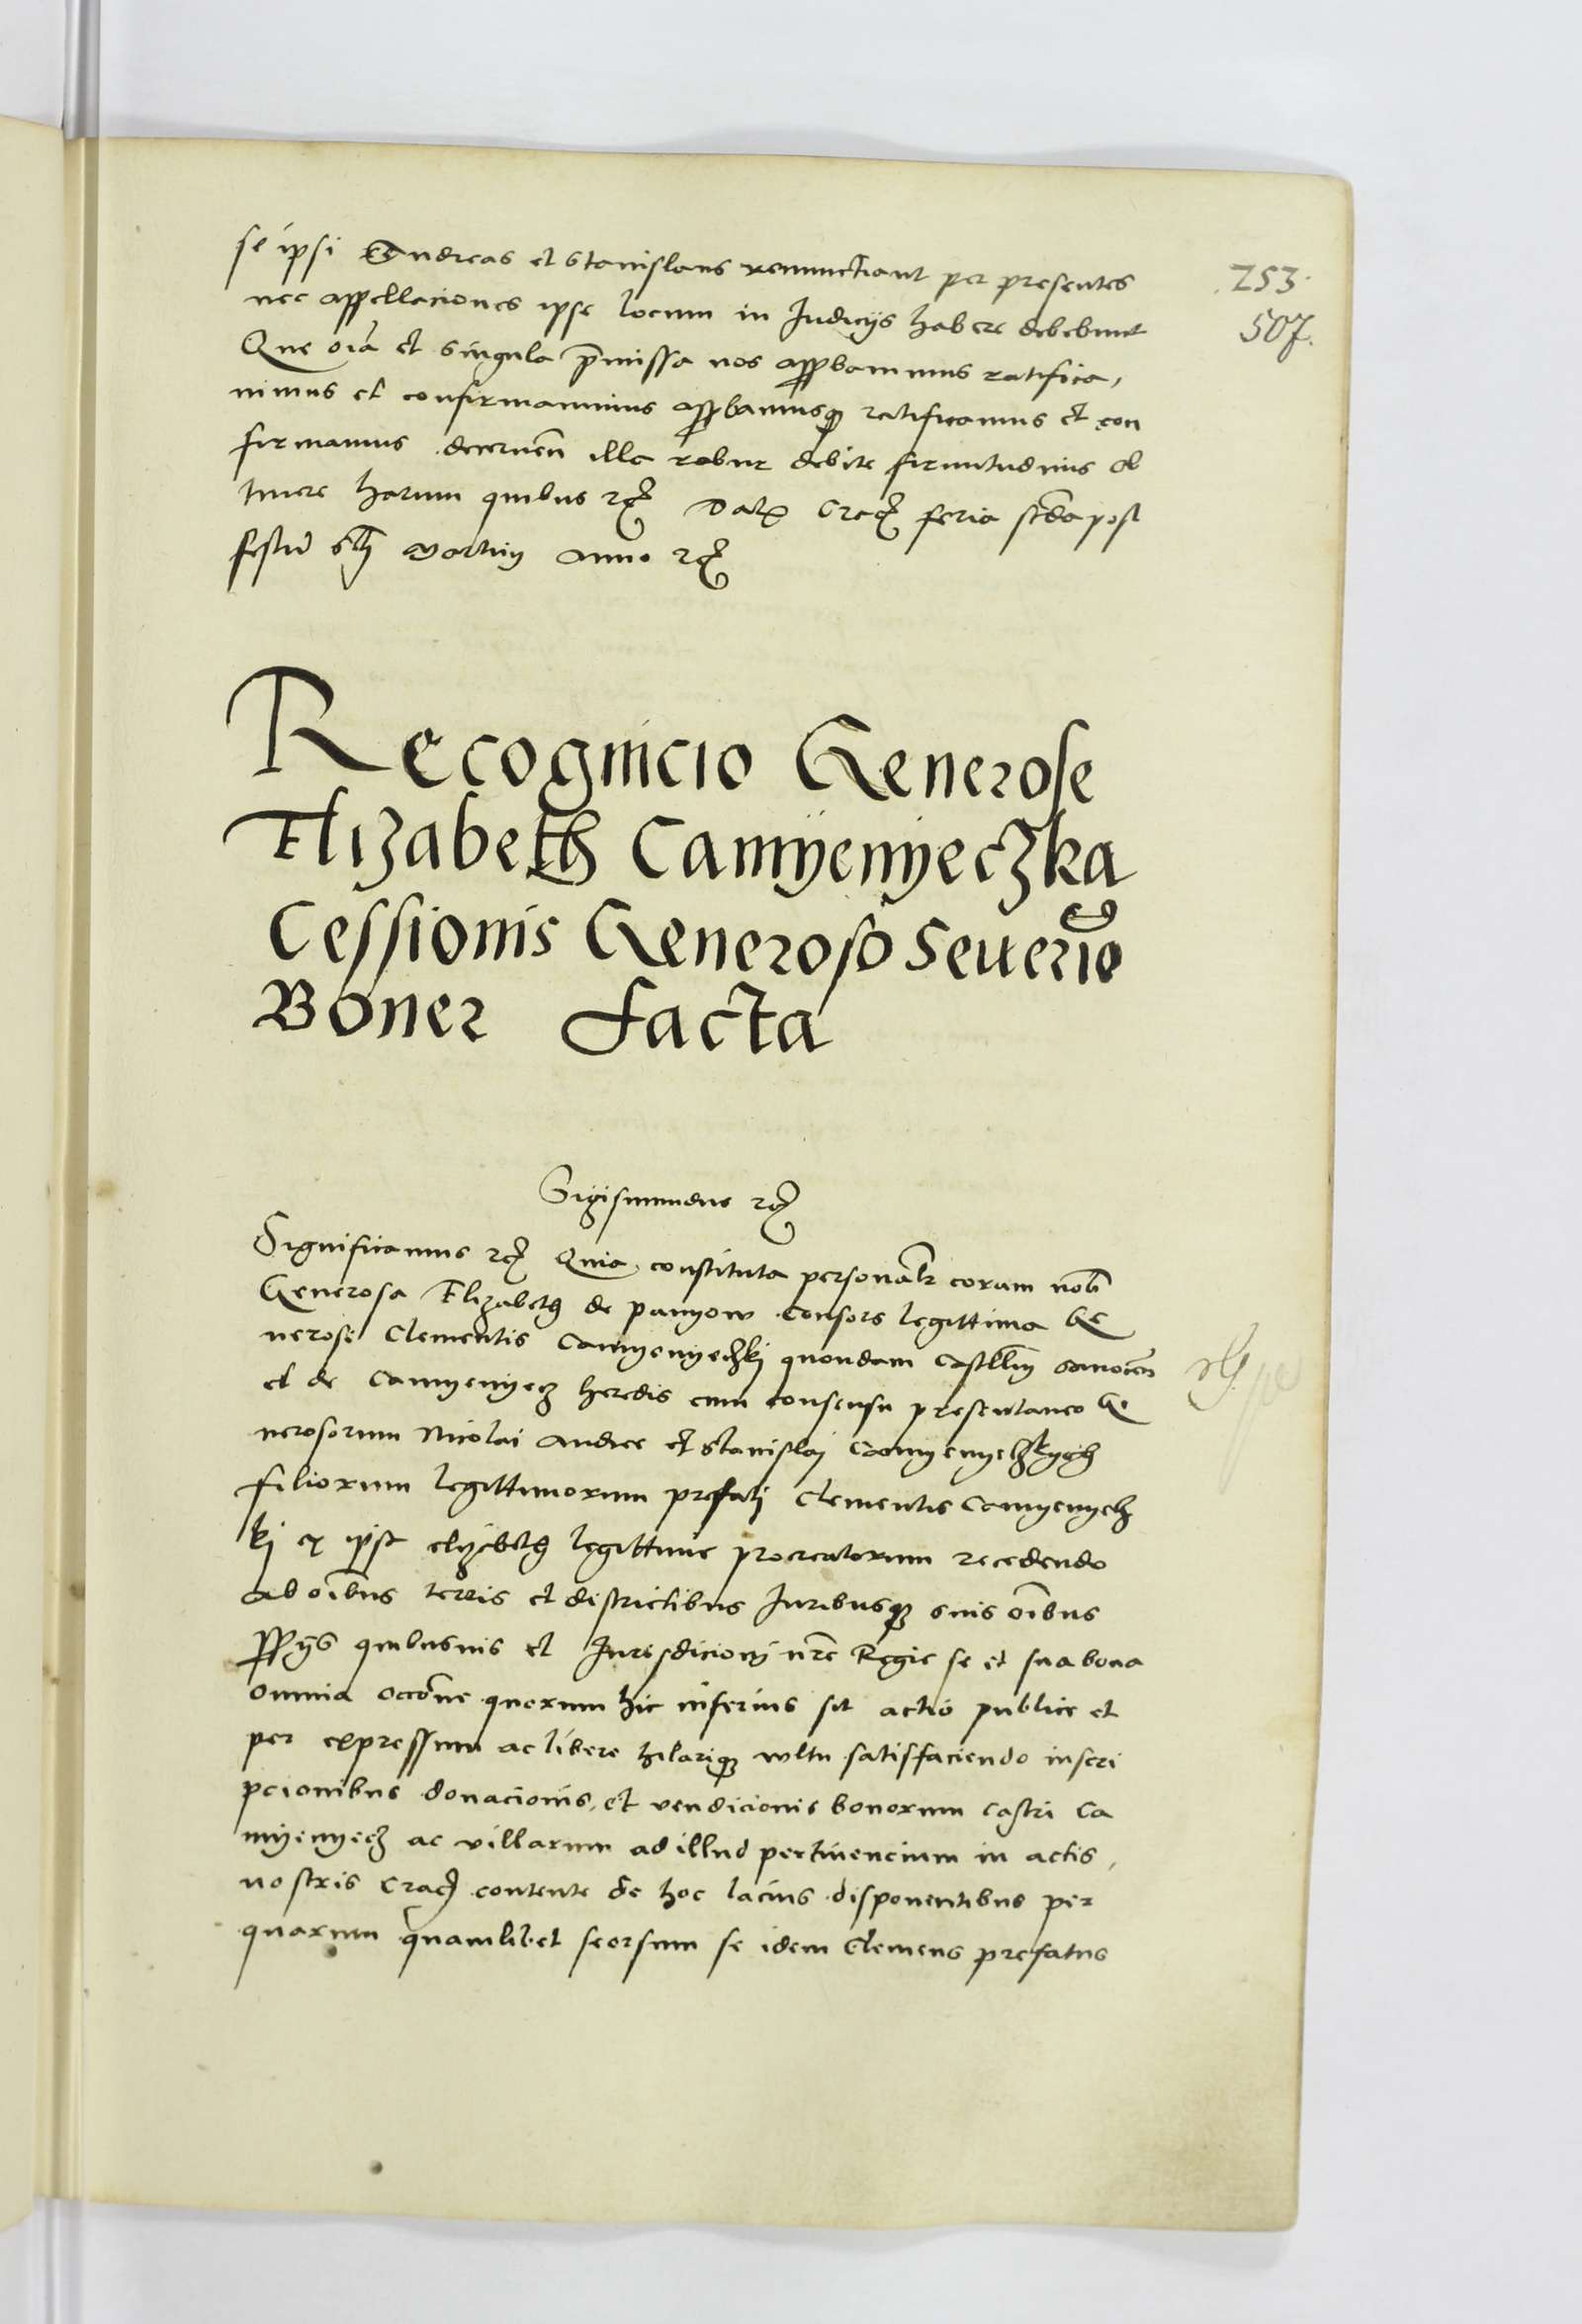 se ipsi Andreas et Stanislaus renunctiant per presentes
253.
nec appellaciones ipse locum in Iudicijs habere debebunt
507.
Que oīa et singula p̄missa nos approbauimus ratifica,
uimus et confirmauimus approbamusqꝫ ratificamus et con
firmamus decernen̄ illa robur debite firmitudinis ob
tinere harum quibus rc̄ Datꝫ Crac̄ feria sc̄da post
festū sc̄j Martinj Anno rc̄
Recognicio Generose
Elizabeth Camyenyeczka
Cessionis Generoso Seuerīo
Boner facta
Sigismundus rc̄
Significamus rc̄ Quia constituta personalr̄ coram nob̄
Generosa Elizabeth de panyow consors legittima Ge
nerosi Clementis Camyenyeczkj quondam castell̄nj Sanocen̄
et de Camyenyecz heredis cum consensu presentaneo Ge
nerosorum Nicolai Andree et Stanislaj Camyenyeczkych
filiorum legittimorum prefatj Clementis Camyenyecz
kj ex ipsa elizabeth legittime procreatorum recedendo
ab oībus terris et districtibus Iuribusqꝫ suis oībus
pprijs quibusuis et Iurisdicionj nr̄e Regie se et sua bona
omnia occōne quorum hic inferius fit actio publice et
per expressum ac libere hilariqꝫ vultu satisfaciendo inscri
pcionibus donacionis, et vendicionis bonorum castri Ca
myenyecz ac villarum ad illud pertinencium in actis,
nostris Crac̄ contente de hoc lacius disponentibus per
quarum quamlibet seorsum se idem Clemens prefatus